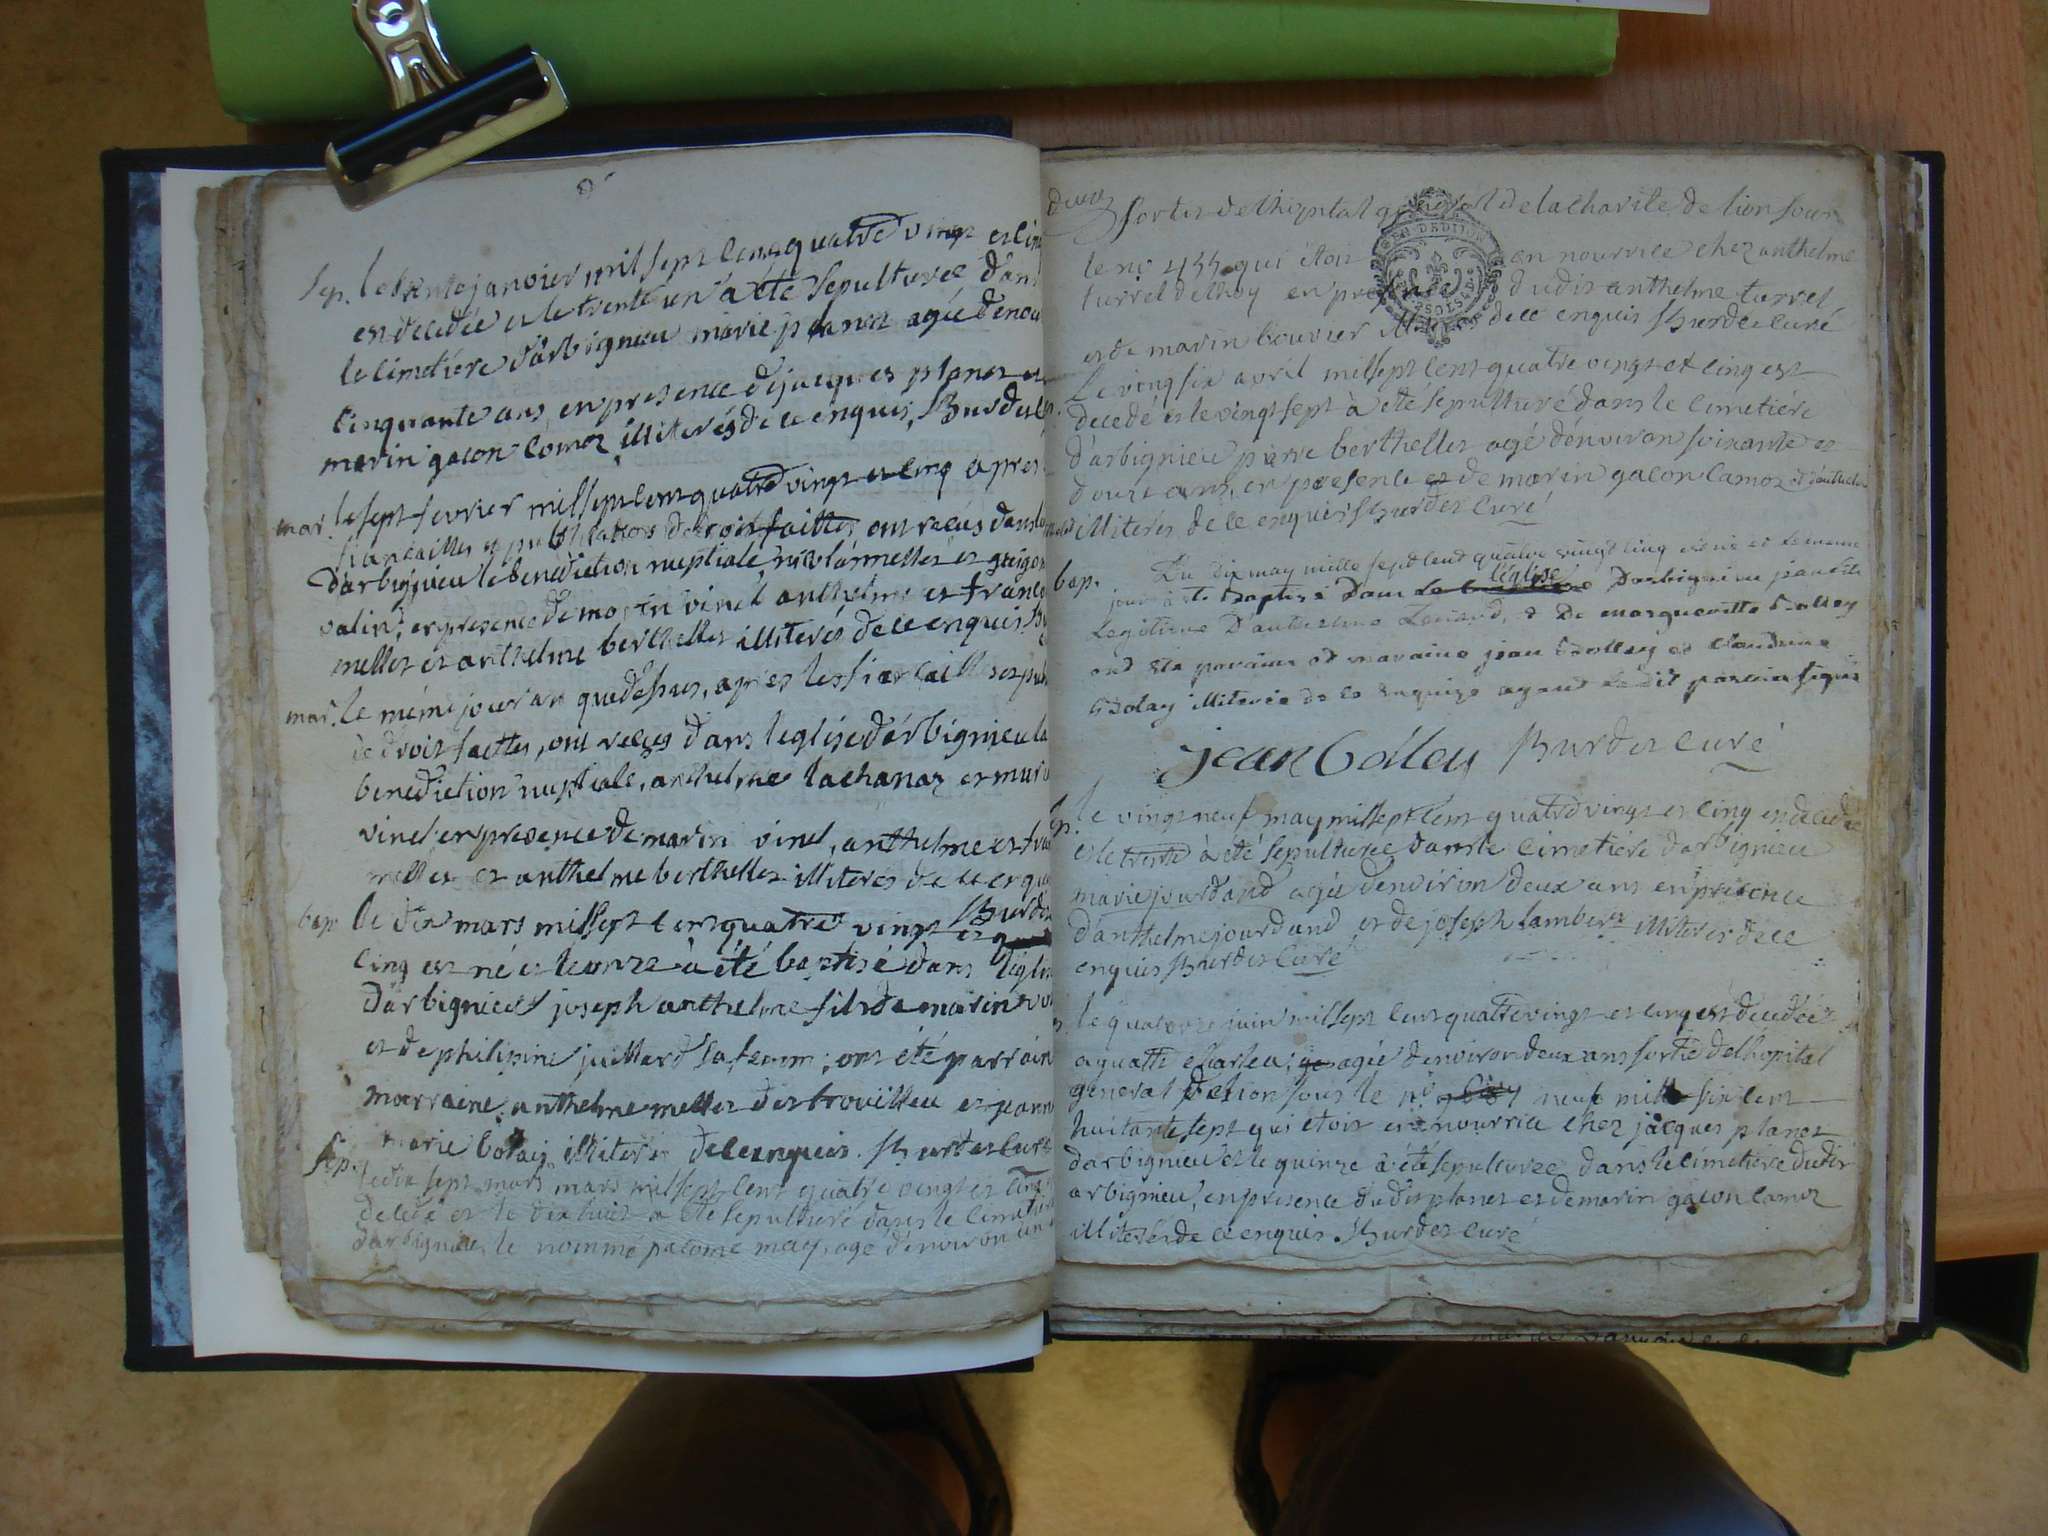 sep. le trente janvier mil sept cens quatre vings et cinq
est decedée et le trente un à été sepulturée dans
le cimetiére d'arbignieu marie planet agée d'environ
cinquante ans, en presence de jacques planet et
marin gacon camoz illiterés de ce enquis, Burdet
mar. le sept fevrier mil sept cens quatre vings et cinq apres
fiancailles et publications de droit faittes ont recus dans
d'arbignieu la benediction nuptiale, mellet et
en presence de marin vinet anthelme et
mellet et anthelme berthellet illiterés de ce enquis.
mar. le méme jour an que dessus, apres les fiancailles et
de droit faittes, ont recues dans l'eglise d'arbignieu la
benediction nuptiale, anthelme lachanaz et
vinet en presence de marin vinet, anthelme et
mellet et anthelme berthellet illiterés de ce
bap. le dix mars mil sept cens quatre vings et Burdet
cinq est né et le onze à été baptisé dans l'eglise
d'arbignieu joseph anthelme fils de marin
et de philipine juillard sa femme, ont été parrain
marraine, anthelme mellet de et jeanne
marie bolley illiterés de ce enquis. Burdet curé
sep. le dix sept mars mars mil sept cens quatre vings et cinq
decedé et le dix huit a été sepulturé dans le cimetiére
d'arbignieu, le nommé pacome may, agé d'environ un
deux sortis de l'hopital general de la charité de lion sous
EN DEDIT
le no 455 qui étoit en nourrice chez anthelme
turrel en presence dudit anthelme turrel
et de marin bouvier illiterés de ce enquis Burdet curé
Le vingt six avril mil sept cens quatre vings et cinq est
decedé et le vingt sept à été sepulturé dans le cimetiére
d'arbignieu pierre berthellet agé d'environ soixante et
douze ans, en presence et de marin gacon camoz
illiterés de ce enquis Burdet curé
bap. Du dix may mille sept cent quatre vingt cinq et le meme
jour à été Baptisé Dans l'église D'arbignieu
Legitime D'anthelme & De marguerite Bolley
ont été parain et maraine jean Bolley et Claudine
Bolley illiterée de ce enquise ayant ledit parain signé
jean bolley Burdet curé
le vingt neuf may mil sept cens quatre vings et cinq est decedée
et le trente à été sepulturée dans le cimetiére d'arbignieu
marie jourdand agée d'environ deux ans en presence
d'anthelme jourdand et de joseph lambert illiterés de ce
enquis Burdet curé
le quatorze juin mil sept cens quatre vings et cinq est decedée
agée d'environ deux ans sortie de l'hopital
general de lion sous le no neuf mille six cent
huitante sept qui étoit en nourrice chez jacques planet
d'arbignieu et le quinze à été sepulturée dans le cimetiére dudit
arbignieu, en presence dudit planet et de marin gacon camoz
illiterés de ce enquis Burdet curé